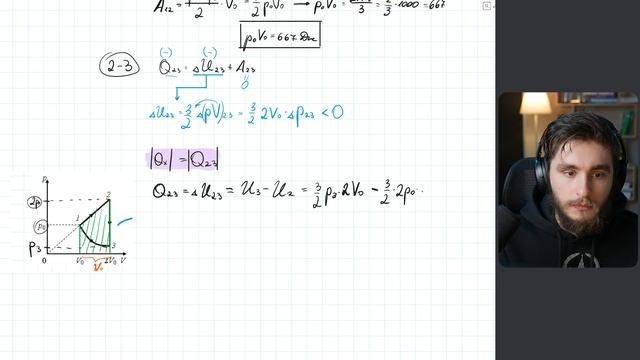 A₁₂ = ――― · V₀ = 3/2 p₀V₀ → p₀V₀ = ― = 2/3 · 1000 = 667
p₀V₀ = 667 Дж
(-) (-)
2-3 Q₂₃ = ΔU₂₃ + A₂₃
0
ΔU₂₃ = 3/2 Δ(pV)₂₃ = 3/2 2V₀ · Δp₂₃ < 0
|Qₓ| = |Q₂₃|
Q₂₃ = ΔU₂₃ = U₃ - U₂ = 3/2 p₃·2V₀ - 3/2·2p₀··
p
2p₀ 2
p₀ 1
p₃ 3
0 V₀ 2V₀ V
V₀